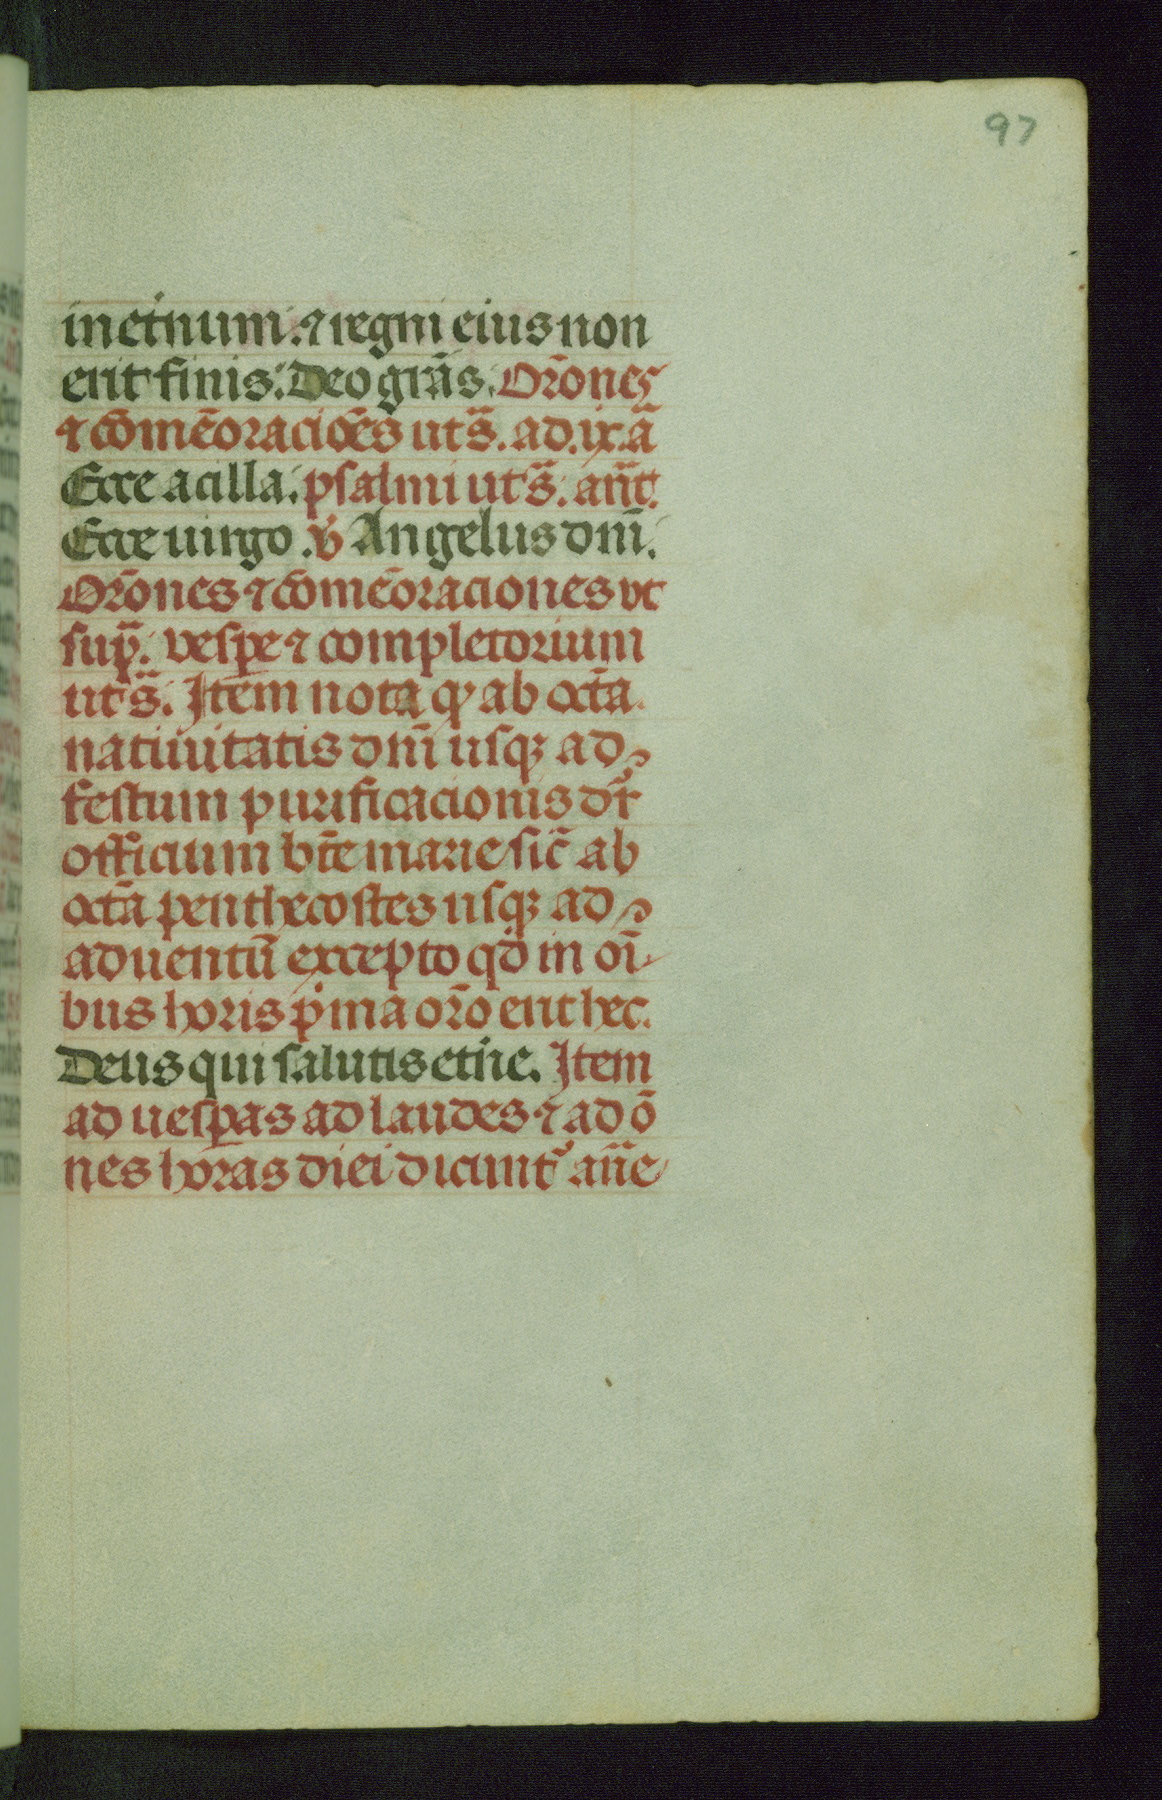 97
in et'num: ⁊ regni eius non
erit finis: Deo gr̃as. Or̃ones
⁊ cõmẽoraciões ut s̃. ad. ix. ã
Ecce acilla. psalmi ut s̃. añt.
Ecce uirgo. ℣ Angelus dñi.
Or̃ones ⁊ cõmẽoraciones vt
sup̃. vesꝑe ⁊ completorium
ut s̃. Item nota ꝙ ab octã
natiuitatis dñi usqꝫ ad
festum purificacionis dr̃
officium bt̃e marie sic̃ ab
octã penthecostes usqꝫ ad
aduentũ excepto qd̃ in oĩ
bus horis pͥma or̃o erit hec.
Deus qui salutis et'ne. Item
ad uesꝑas ad laudes ⁊ ad õ
nes horas diei dicunt᷑ añe